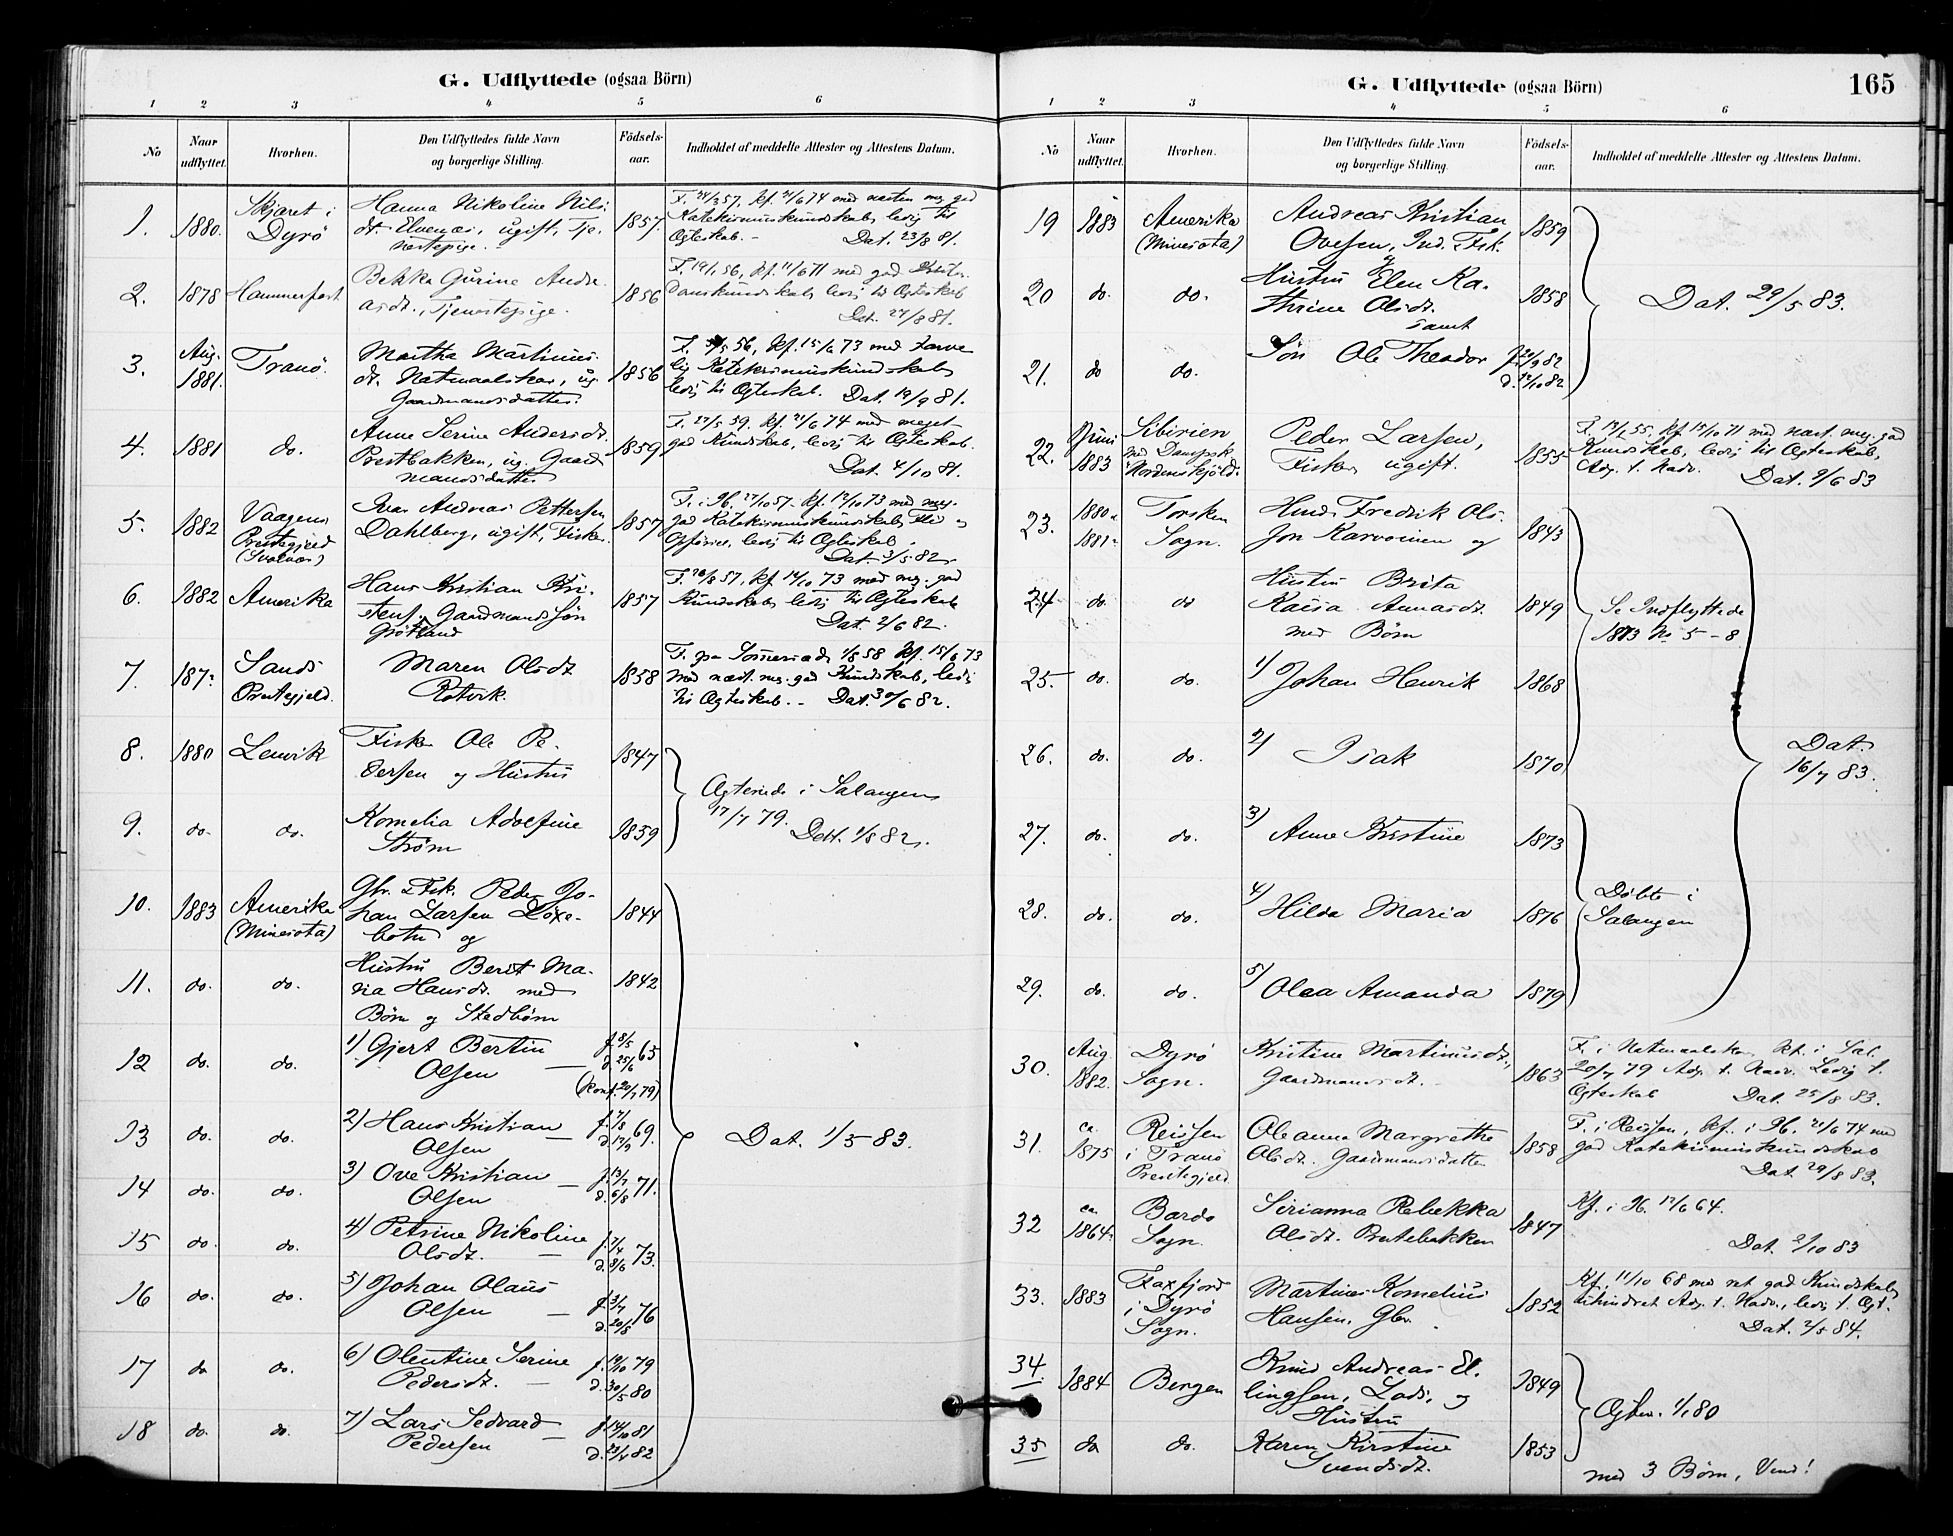 G. Udflyttede (ogsaa Börn)
1 2 3 4 5 6
No
Naar udflyttet.
Hvorhen.
Den Udflyttedes fulde Navn og borgerlige Stilling.
Födsels-aar.
Indholdet af meddelte Attester og Attestens Datum.
1. 1880. Skjæret i
Dyrö
Hanna Nikoline Nils-
dt. Elvenæs, ugift, Tje-
nestepige. 1857.
med næsten meg. god
Katekismuskundskab, ledig til
Ægteskab. - Dat. 23/8 81.
2. 1878 Hammerfest
Bekka Gurine Andre-
asdt., Tjenestepige. 1856
F. 19/1 56, kf. 11/6 71 med god Kristen-
domskundskab, ledig til Ægteskab
Dat. 27/8 81.
3. Aug. 1881. Tranö.
Martha Martinus-
dt. ug.
Gaardmandsdatter. 1856
kf. 15/6 73 med tarve-
lig Katekismuskundskab,
ledig til Ægteskab. Dat. 19/9 81.
4. 1881 do.
Anne Serine Andersdt.
Prestbakken, ug. Gaard-
mandsdatter 1859
F. 27/5 59. kf. 21/6 74 med meget
god Kundskab, ledig til Ægteskab.
Dat. 4/10 81.
5. 1882 Vaagens
Prestegjeld
(Svolvær)
Andreas Pettersen
Dahlberg, ugift, Fisker. 1857
F. i Ib. 27/10 57. kf. 12/10 73 med meg.
god Katekismuskundskab, Flid og
Opførsel, ledig til Ægteskab.
Dat. 3/5 82.
6. 1882 Amerika
Hans Kristian Kri-
stens. Gaardmandssøn
Grötland 1857
F. 26/8 57, kf. 14/10 73 med meg. god
Kundskab, ledig til Ægteskab
Dat. 2/6 82.
7. 187? Sands
Prestegjeld.
Maren Olsdt
Rotvik. 1858
1/8 58 kf. 15/6 73
med næst. meg. god Kundskab, ledig
til Ægteskab. - Dat. 30/6 82.
8. 1880 Lenvik
Fisker Ole Pe-
dersen og Hustru 1847
Ægteviede i Salangen
17/7 79. Dat. 1/8 82.
9. do. do.
Kornelia Adolfine
Strøm 1859
10. 1883 Amerika
(Minesota)
Gbr. & Fsk. Peder Jo-
han Larsen Løxe-
botn og 1844
11. do. do.
Hustru Berit Ma-
ria Hansdt. med
Børn og Stedbørn 1842
12 do. do.
1) Gjert Bertin
Olsen f. 8/5 d. 25/6 65
(Konf. 20/7 79)
13 do. do.
2) Hans Kristian
Olsen f. 7/8 d. 12/9 69.
14 do. do.
3) Ove Kristian
Olsen f. 13/7 d. 6/8 71.
15 do. do.
4) Petrine Nikoline
Olsdt. f. 7/4 d. 8/6 73.
16 do. do.
5) Johan Olaus
Olsen f. 3/7 d. 20/8 76
17 do do.
6) Olentine Serine
Pedersdt. f. 19/10 79
d. 30/5 80
18 do. do.
7) Lars Sedvard
Pedersen f. 14/10 81
d. 23/4 82
Dat. 1/5 83.
G. Udflyttede (ogsaa Börn) 165
1 2 3 4 5 6
No
Naar udflyttet.
Hvorhen.
Den Udflyttedes fulde Navn og borgerlige Stilling.
Födsels-aar.
Indholdet af meddelte Attester og Attestens Datum.
19 1883 Amerika
(Minesota)
Andreas Kristian
Ovesen, Ind. Fsk.
og 1859
20 do. do.
Hustru Elen Ka-
thrine Olsdt.
samt 1858
Dat. 29/5 83.
21. do do.
Søn Ole Theodor f. 20/9 82
d. 12/10 82
22. Juni 1883 Sibirien
med Dampsk.
Nordenskjöld.
Peder Larsen,
Fisker, ugift. 1855
kf. 15/10 71 med næst. meg. god
Kundskab, ledig til Ægteskab,
Adg. t. Nadv. Dat. 9/6 83
23. 1880 a 1881 Torsken
Sogn.
Fredrik Ols.
Jon Karvonen og 1843
24 do. do
Hustru Brita
Kaisa Annasdt.
med Børn 1849
Se Indflyttede
1873 No 5-8
25. do. do.
1) Johan Henrik 1868
26. do. do.
2) Isak 1870
Dat.
16/7 83.
27. do. do.
3) Anne Kristine 1873
28. do. do.
4) Hilda Maria 1876
Døbte i
Salangen
29. do. do.
5) Olea Amanda 1879
30. Aug 1882. Dyrö
Sogn.
Kristine Martinusdt.,
Gaardmandsdt. 1863
kf. i Sal.
20/7 79 Adg. t. Nadv. Ledig t.
Ægteskab Dat. 25/8 83.
31. ca. 1875 Reissen
i Tranö
Prestegjeld
Oleanna Margrethe
Olsdt. Gaardmandsdatter 1858
F. i Reissen, kf. i Ib. 21/6 74 med
god Katekismuskundskab
Dat. 29/8 83.
32 ca. 1864. Bardo
Sogn.
Sirianna Rebekka
Olsdt. Prestebakken 1847
Kf. i Ib. 12/6 64.
Dat. 2/10 83
33. 1883 Faxfjord
i Dyrö
Sogn.
Martines Kornelius
Hansen, Gbr. 1852
Kf. 11/10 68 med ret god Kundskab,
uhindret Adg. t. Nadv., ledig t. Ægt.
Dat. 2/5 84.
34. 1884 Bergen
Knud Andreas El-
lingsen, Lods, og
Hustru 1849
Ægtev. 1/1 80
35 do do.
Karen Kirstine
Svendsdt. 1853
med 3 Børn, Vend!